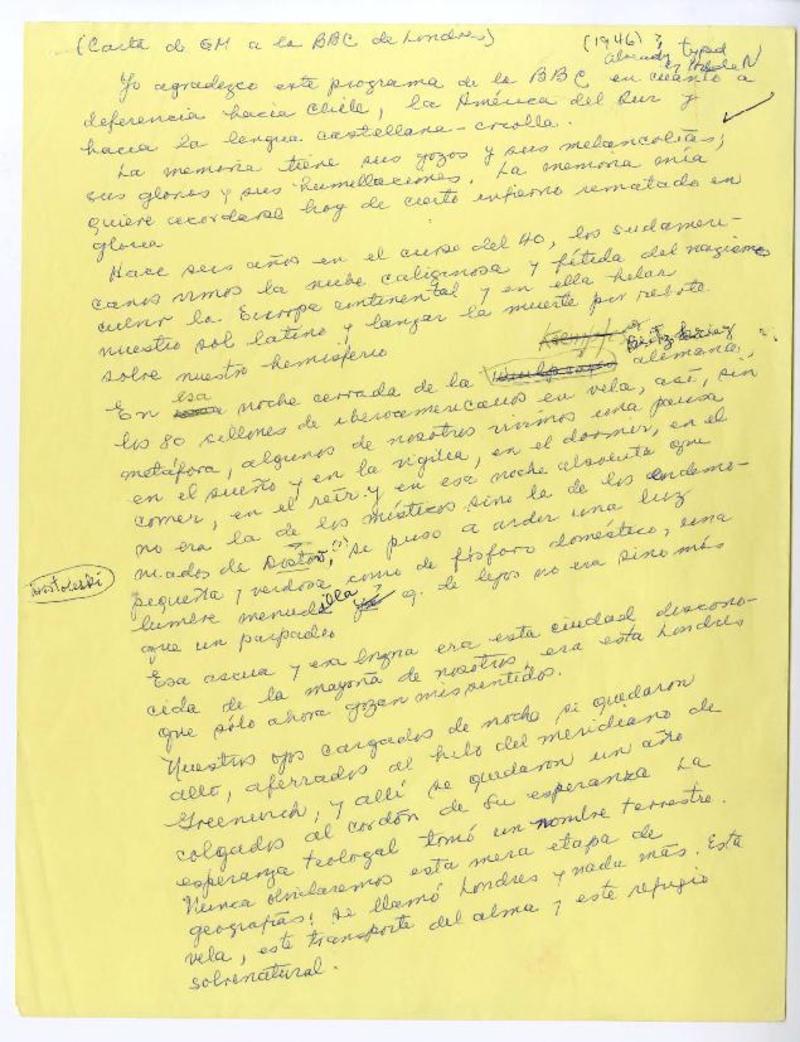 (Carta de GM a la BBC de Londres) (1946) ?
Already typed
Yo agradezco este programa de la BBC en cuanto a
deferencia hacia Chile, la América del Sur y
hacia la lengua castellana-criolla.
La memoria tiene sus gozos y sus melancolías;
sus glorias y sus humillaciones. La memoria mía
quiere acordarse hoy de cierto infierno rematado en
gloria
Hace seis años en el curso del 40, los sudameri-
canos vimos la nube caliginosa y fétida del nazismo
cubrir la Europa continental y en ella helar
nuestro sol latino y lanzar la muerte por rebote
sobre nuestro hemisferio
En esa noche cerrada de la alemana,
los 80 millones de iberoamericanos en vela, así, sin
metáfora, algunos de nosotros vivimos una pausa
en el sueño y en la vigilia, en el dormir, en el
comer, en el reír. y en esa noche absoluta que
no era la de los místicos sino la de los endemo-
niados de Dostoo, (?) se puso a arder una luz
Dostoievski
pequeña y verdosa como de fósforo doméstico, una
lumbre menudilla ? q. de lejos no era sino más
que un parpadeo
Esa ascua y esa brizna era esta ciudad descono-
cida de la mayoría de nosotros, era esta Londres
que sólo ahora gozan mis sentidos.
Nuestros ojos cargados de noche se quedaron
allí, aferrados al hilo del meridiano de
Greenwich, y allí se quedaron un año
colgados al cordón de su esperanza La
esperanza teologal tomó un nombre terrestre.
Nunca olvidaremos esta mera etapa de
geografías: se llamó Londres y nada más. Esta
vela, este transporte del alma y este refugio
sobrenatural.